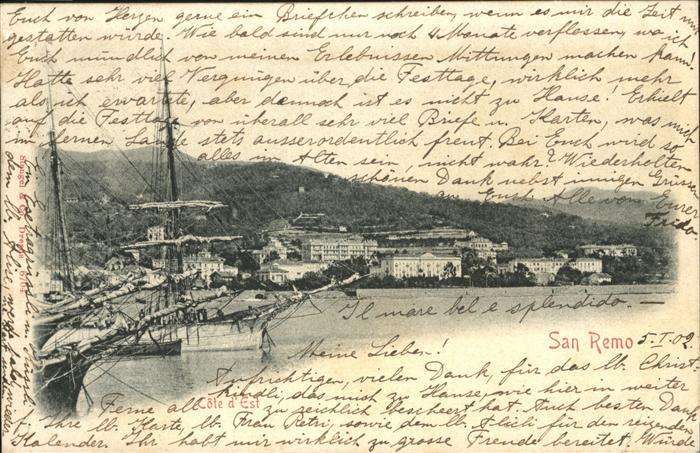 San Remo 5.I.02.
Meine Lieben!
Aufrichtigen, vielen Dank, für das lb. Christ-
kindli, das mich zu Hause, wie hier in weiter
Ferne all zu reichlich beschert hat. Auch besten Dank
f. Ihre lb. Karte, lb. Frau Petri, sowie dem lb. Flückli für den reizenden
Kalender. Ihr habt mir wirklich zu grosse Freude bereitet. Würde
Euch von Herzen gerne ein Briefchen schreiben, wenn es mir die Zeit nur
gestatten würde. Wie bald sind nur noch 4 Monate verflossen, wo ich
Euch mündlich von meinen Erlebnissen Mittungen machen kann!
Hatte sehr viel Vergnügen über die Festtage, wirklich mehr
als ich erwarte, aber dennoch ist es nicht zu Hause! Erhielt
auf die Festtage von überall sehr viel Briefe u. Karten, was mich
im fernen Lande stets ausserordentlich freut. Bei Euch wird so
alles im Alten sein, nicht wahr? Wiederholten
schönen Dank nebst innigen Grüssen
an Euch Alle von Eurer
Frida
Il mare bel e splendido.
Côte d'Est